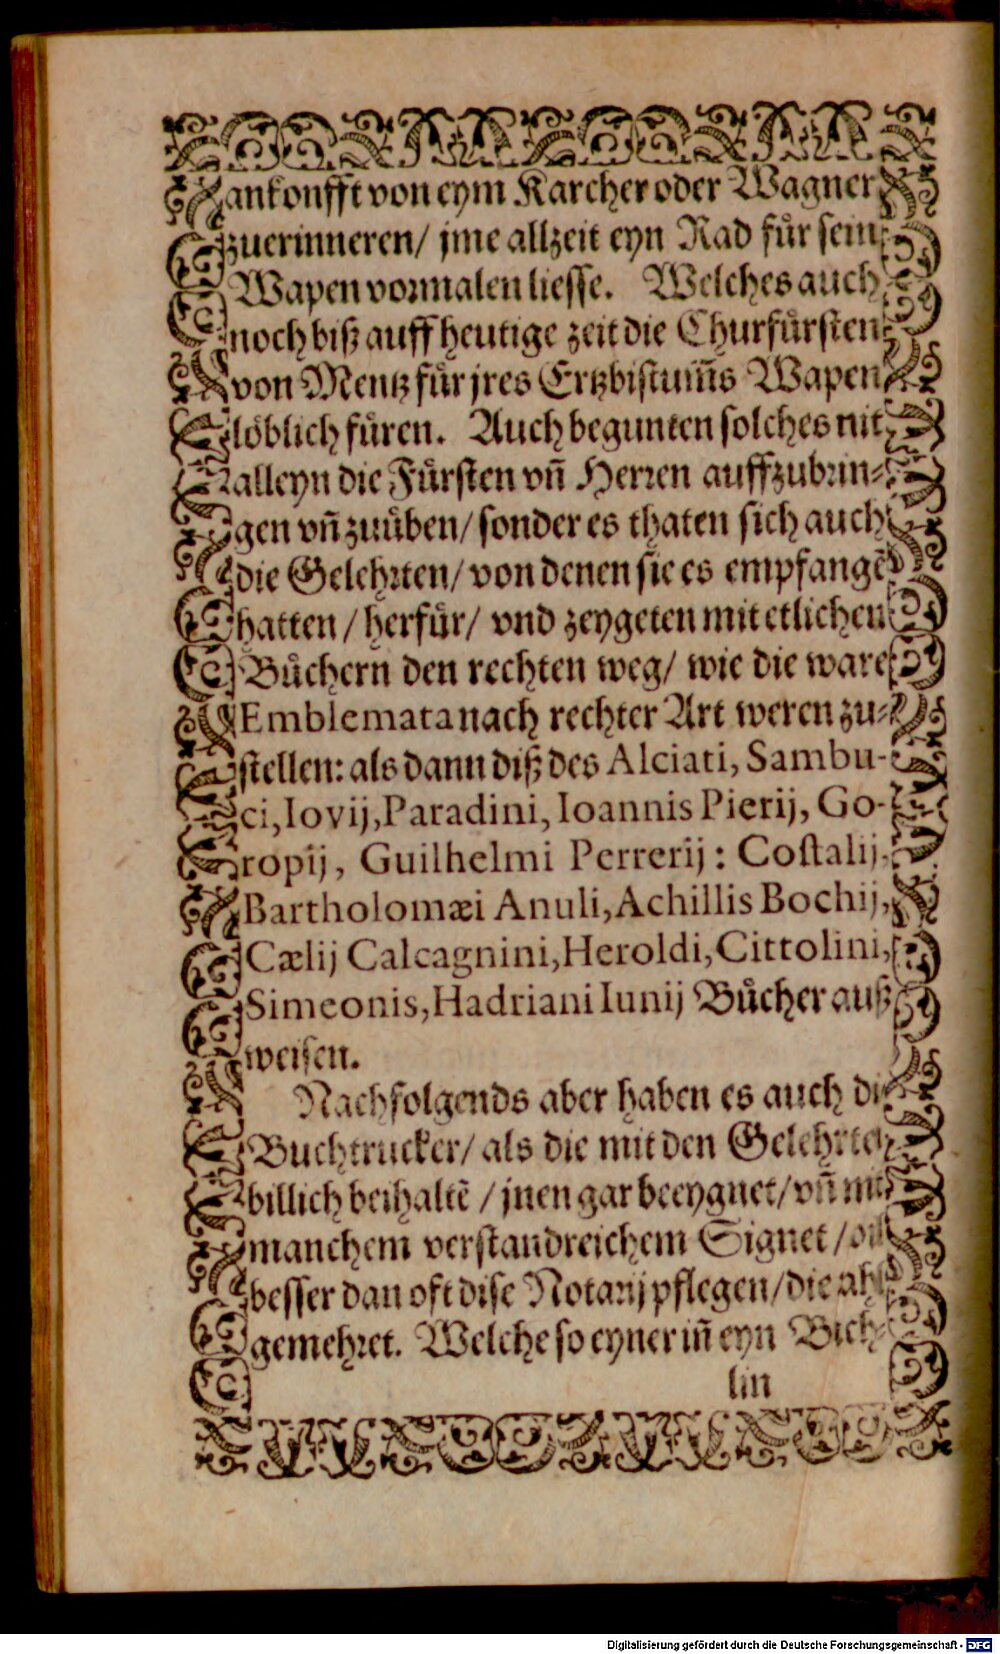 ankonfft von eym Karcher oder Wagner
zuerinneren/ jme allzeit eyn Rad fuͤr sein
Wapen vormalen liesse. Welches auch
noch biß auff heutige zeit die Churfuͤrsten
von Mentz fuͤr jres Ertzbistum̃s Wapen
loͤblich fuͤren. Auch begunten solches nit
alleyn die Fuͤrsten vñ Herren auffzubrin⸗
gen vñ zuuͤben/ sonder es thaten sich auch
die Gelehrten/ von denen sie es empfangẽ
hatten / herfuͤr/ vnd zeygeten mit etlichen
Buͤchern den rechten weg/ wie die ware
Emblemata nach rechter Art weren zu⸗
stellen: als dann diß des Alciati, Sambu-
ci, Iovij, Paradini, Ioannis Pierij, Go-
ropij, Guilhelmi Perrerij: Costalij,
Bartholomæi Anuli, Achillis Bochij,
Cælij Calcagnini, Heroldi, Cittolini,
Simeonis, Hadriani Iunij Buͤcher auß
weisen.
Nachfolgends aber haben es auch di
Buchtrucker/ als die mit den Gelehrte
billich beihaltẽ / jnen gar beeygnet/ vñ mit
manchem verstandreichem Signet /
besser dan oft dise Notarij pflegen/ die
gemehret. Welche so eyner iñ eyn Bich⸗
lin
Digitalisierung gefördert durch die Deutsche Forschungsgemeinschaft - DFG